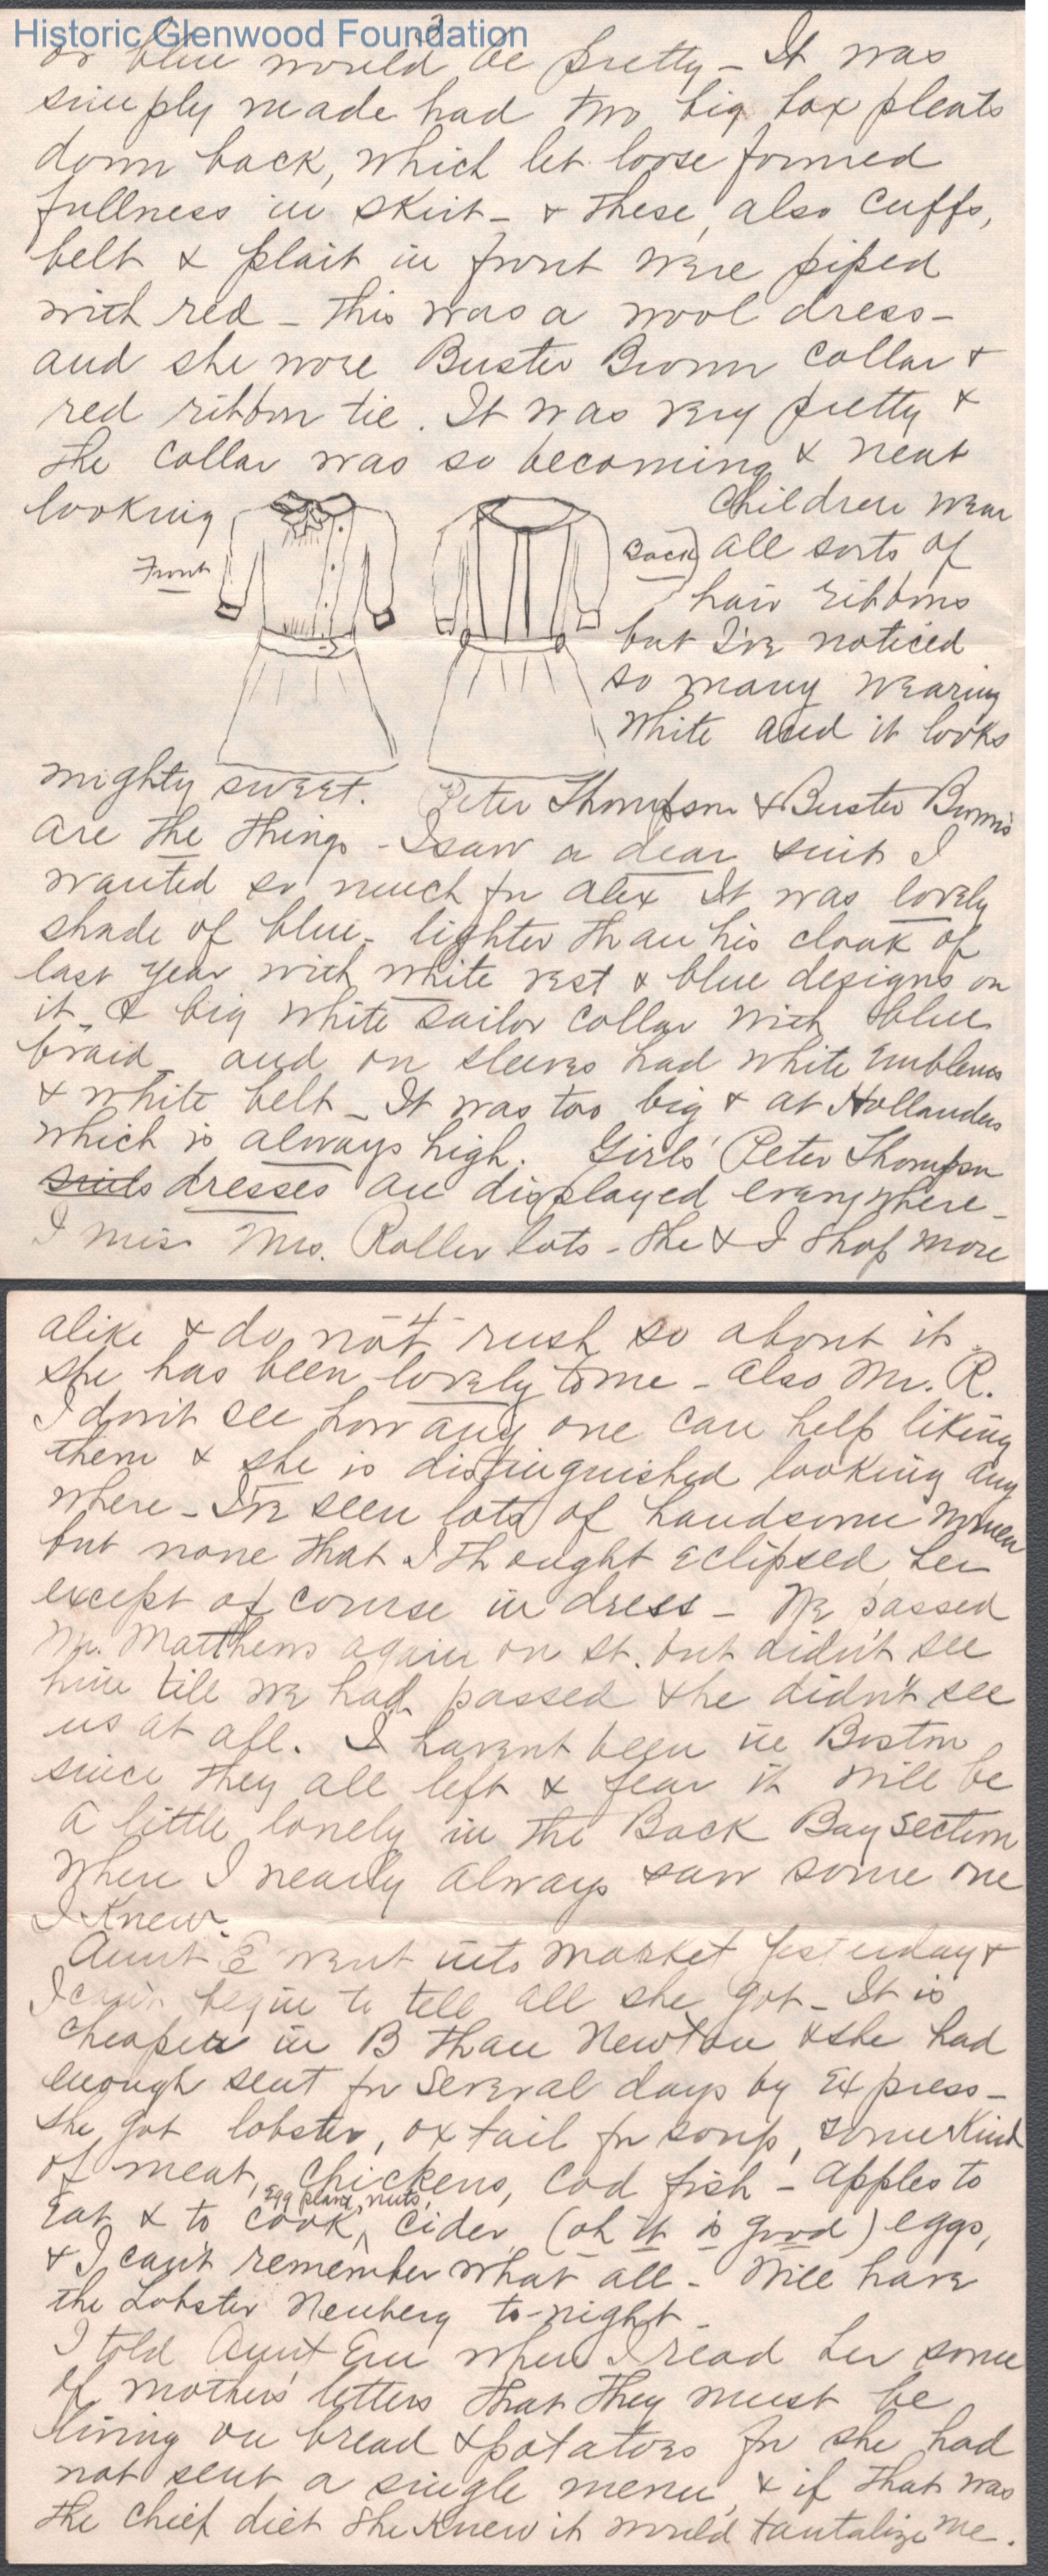 Historic Glenwood Foundation
3
or blue would be pretty – It was
simply made had two big box pleats
down back, which let loose formed
fullness in skirt – & these, also cuffs,
belt & plait in front were piped
with red – this was a wool dress –
and she wore Buster Brown collar &
red ribbon tie. It was very pretty &
the collar was so becoming & neat
looking
Front
Back
Children wear
all sorts of
hair ribbons
but I've noticed
so many wearing
white and it looks
mighty sweet. Peter Thompson & Buster Browns
are the things – I saw a dear suit I
wanted so much for Alex It was lovely
shade of blue – lighter than his cloak of
last year with white vest & blue designs on
it & big white sailor collar with blue
braid – and on sleeves had white emblems
& white belt – It was too big & at Hollanders
which is always high. Girls' Peter Thompson
suits dresses are displayed everywhere –
I miss Mrs. Roller lots – She & I shop more
4
alike & do not rush so about it.
she has been lovely to me – also Mr. R.
I don't see how any one can help liking
them & she is distinguished looking any
where – I've seen lots of handsome women
but none that I thought eclipsed her
except of course in dress – We passed
Mr. Matthews again on st. but didn't see
him till we had passed & he didn't see
us at all. I havent been in Boston
since they all left & fear it will be
a little lonely in the Back Bay section
where I nearly always saw some one
I knew.
Aunt E went into market yesterday &
I can't begin to tell all she got – It is
cheaper in B than Newton & she had
enough sent for several days by Express –
She got lobster, ox tail for soup, some kind
of meat, chickens, cod fish – apples to
Egg plant, nuts,
eat & to cook, cider, (oh it is good) eggs,
& I can't remember what all – Will have
the Lobster Newberg to-night –
I told Aunt Em when I read her some
of mother's letters that they must be
living on bread & potatoes for she had
not sent a single menu, & if that was
the chief diet she knew it would tantalize me.